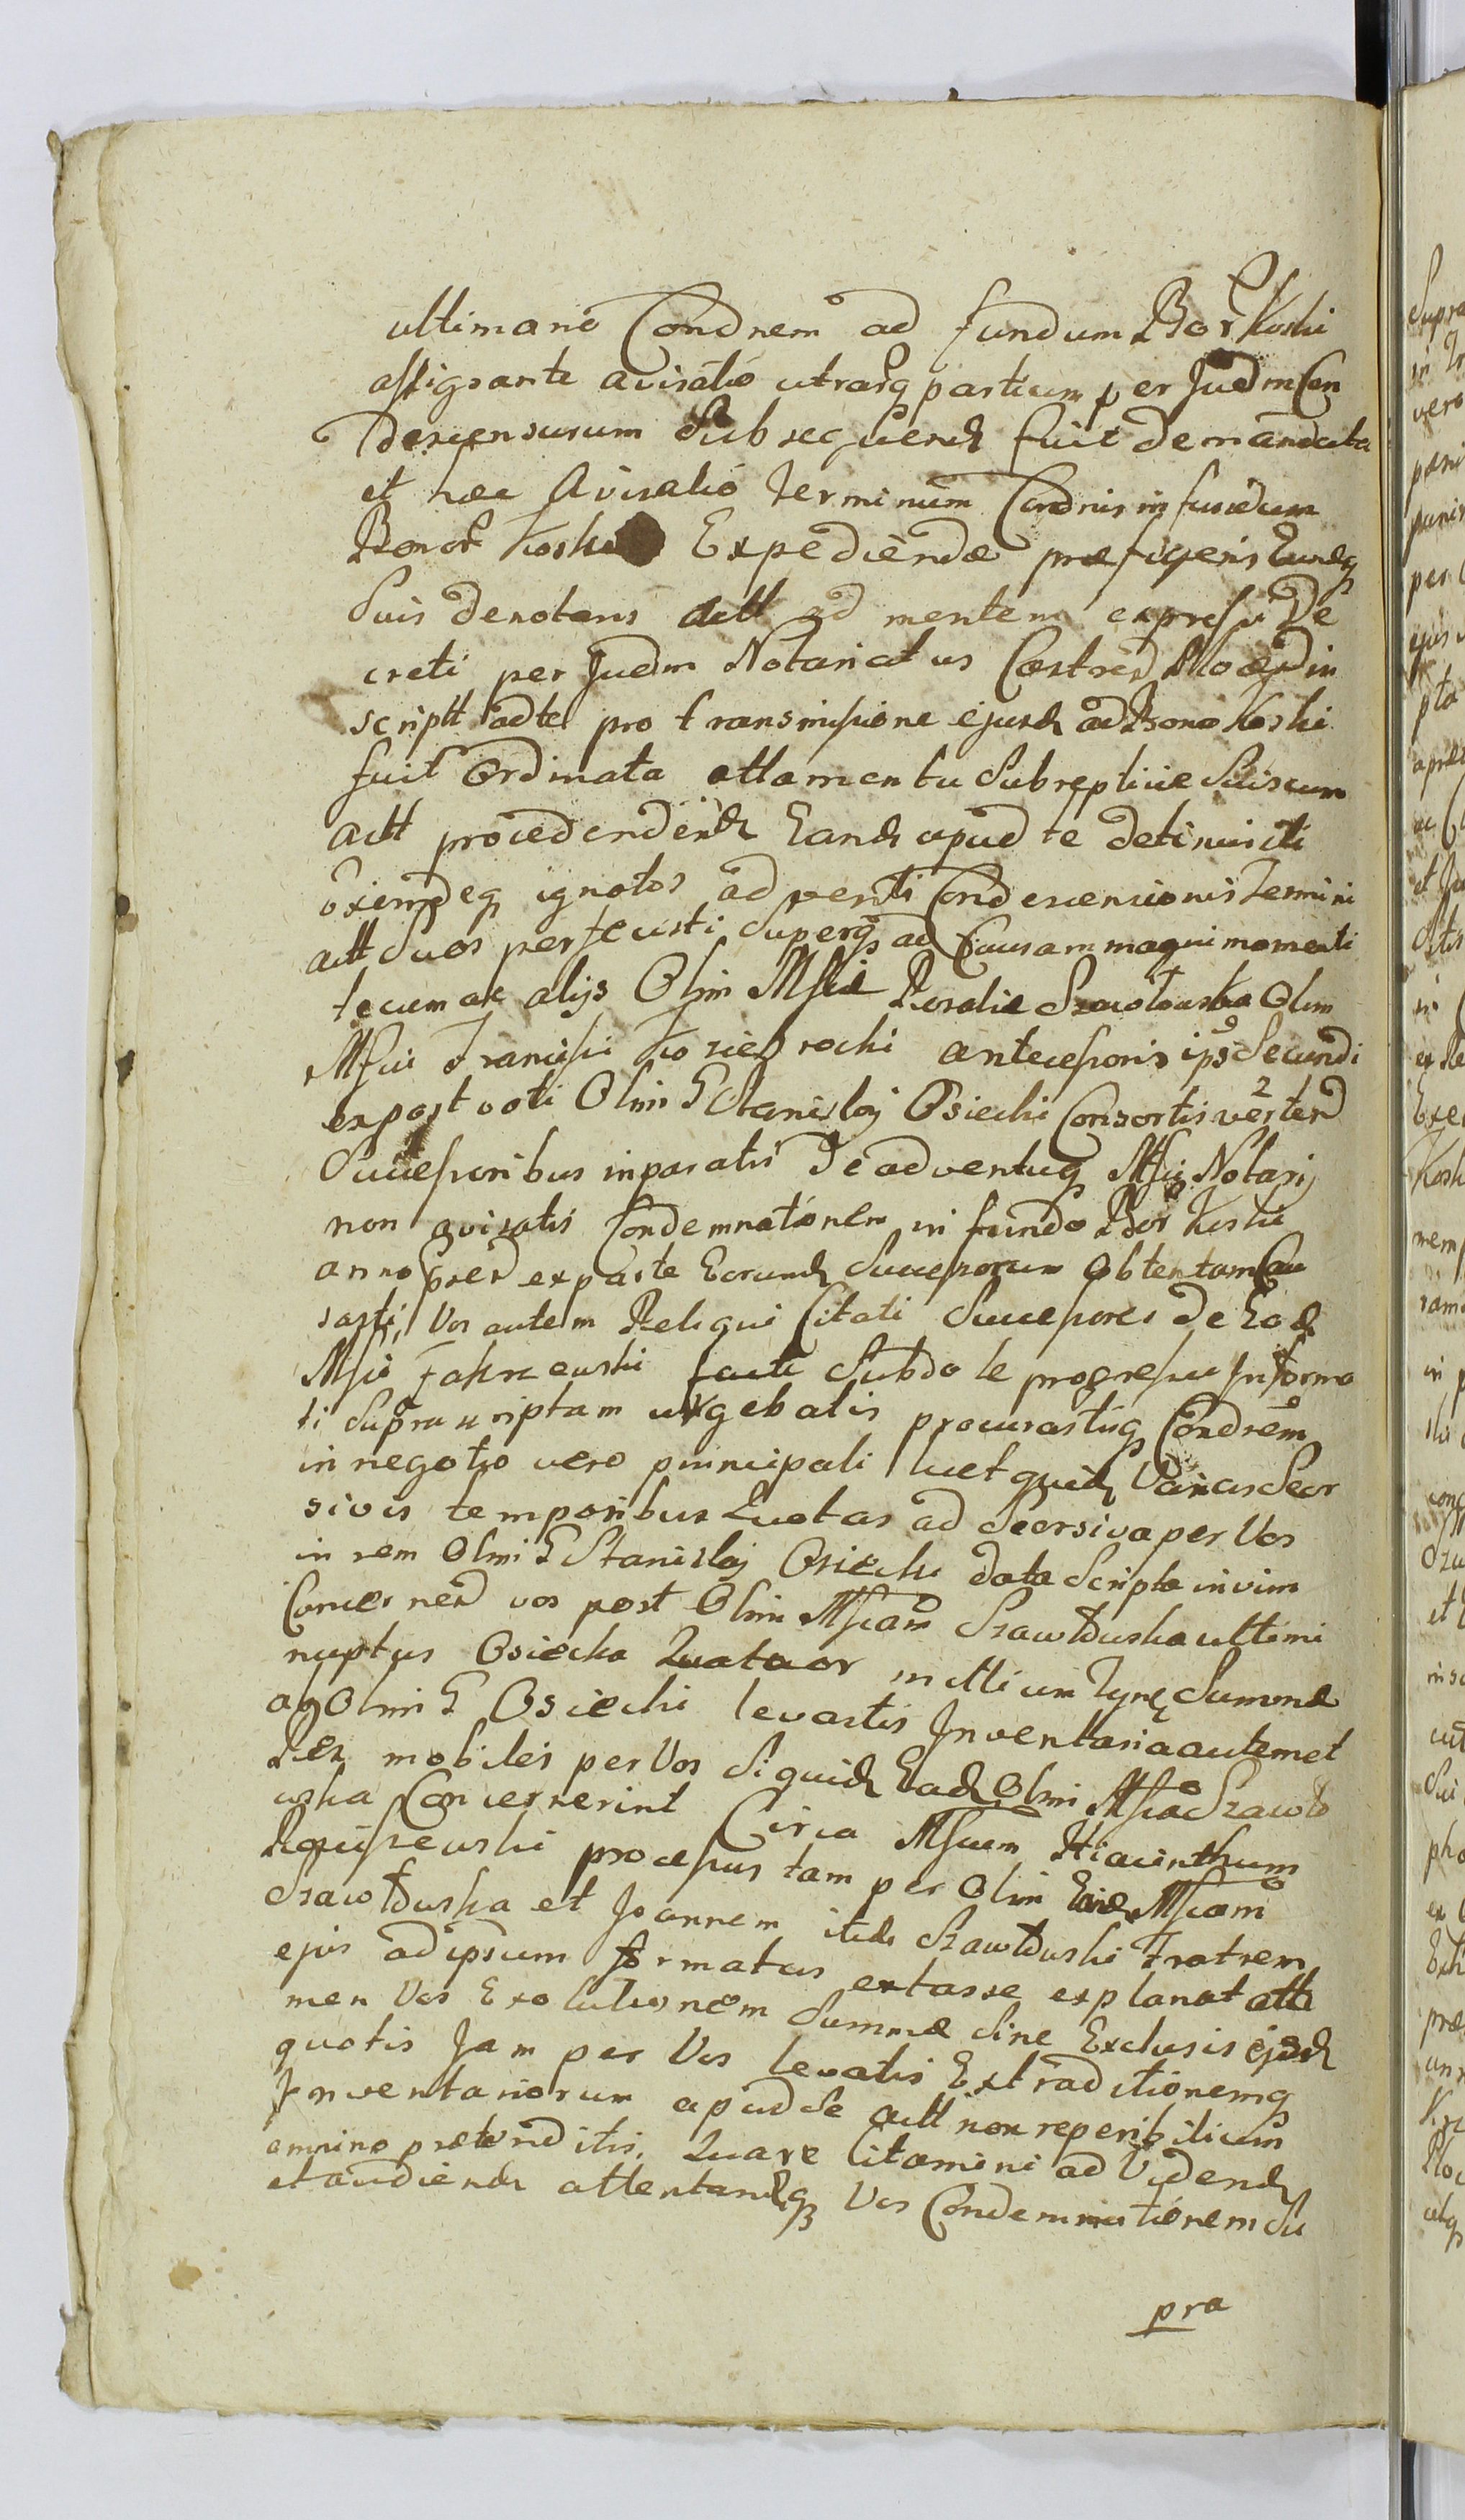 ultimane Condnem ad fundum Bor Koski
assignante avisatio utrarq partium per Judm Con
descensurum Subsequend fuit demandata
et hæc Avisatio Terminum Condnis in fundum
Bonor Koski Expediendæ præfigens Eundq
Suis denotans Actt ad mentem expressi De
creti per Judm Notariatus Castren Plocen in
scriptt ad te pro transmissione ejusd ad Bona Koski
fuit Ordinata attamen tu Subreptitie Suis cum
Actt procedendend Eand apud te detinuisti
exindeq ignotos adventi Condescensionis Termini
Actt Suos perfecisti Superq ad Causam magni momenti
tecum ac alijs Olim Mfiæ Rosaliæ Szawłowska Olim
Mfici Francisci Koziebrocki antecessoris ips Secundi
ex post voti Olim G Stanislaj Osiecki Consortis verten
Successoribus imparatis De adventuq Mfici Notarij
non avisatis Condemnationem in fundo Bor Koski
anno præs ex parte Eorund Successorum Obtentam Cau
sasti, Vos autem Reliqui Citati Successores De Eod
Mfico Zakrzewski facti Subdole progressu Informa
ti Suprascriptam urgebatis procurastisq Condnem
in negotio vero principali licet quid Varias Seor
sivis temporibus Quotas ad Seorsiva per Vos
in rem Olim G Stanislaj Osiecki data Scripta in vim
Concernen vos post Olim Mficam Szawłowska ultimi
nuptus Osiecka Quatuor millium Tynf Summæ
ab Olim G Osiecki levastis Inventaria autem et
Res mobiles per Vos Siquid Ead Olim Mficam Szawło
wska Concernerint Circa Mficum Hiacinthum
processus tam per Olim Eand Mficam
Szawłowska et Joannem itid Szawłowski Fratrem
ejus ad ipsum formatus extasse explanat atta
men Vos Exolutionem Summæ Sine Exclusis ejusd
quotis Jam per Vos levatis Extraditionemq
Inventariorum apud Se Actt non reperibilium
omnino prætenditis. Quare Citamini ad Videnda
et audienda attentandq Vos Condemnationem Su
pra